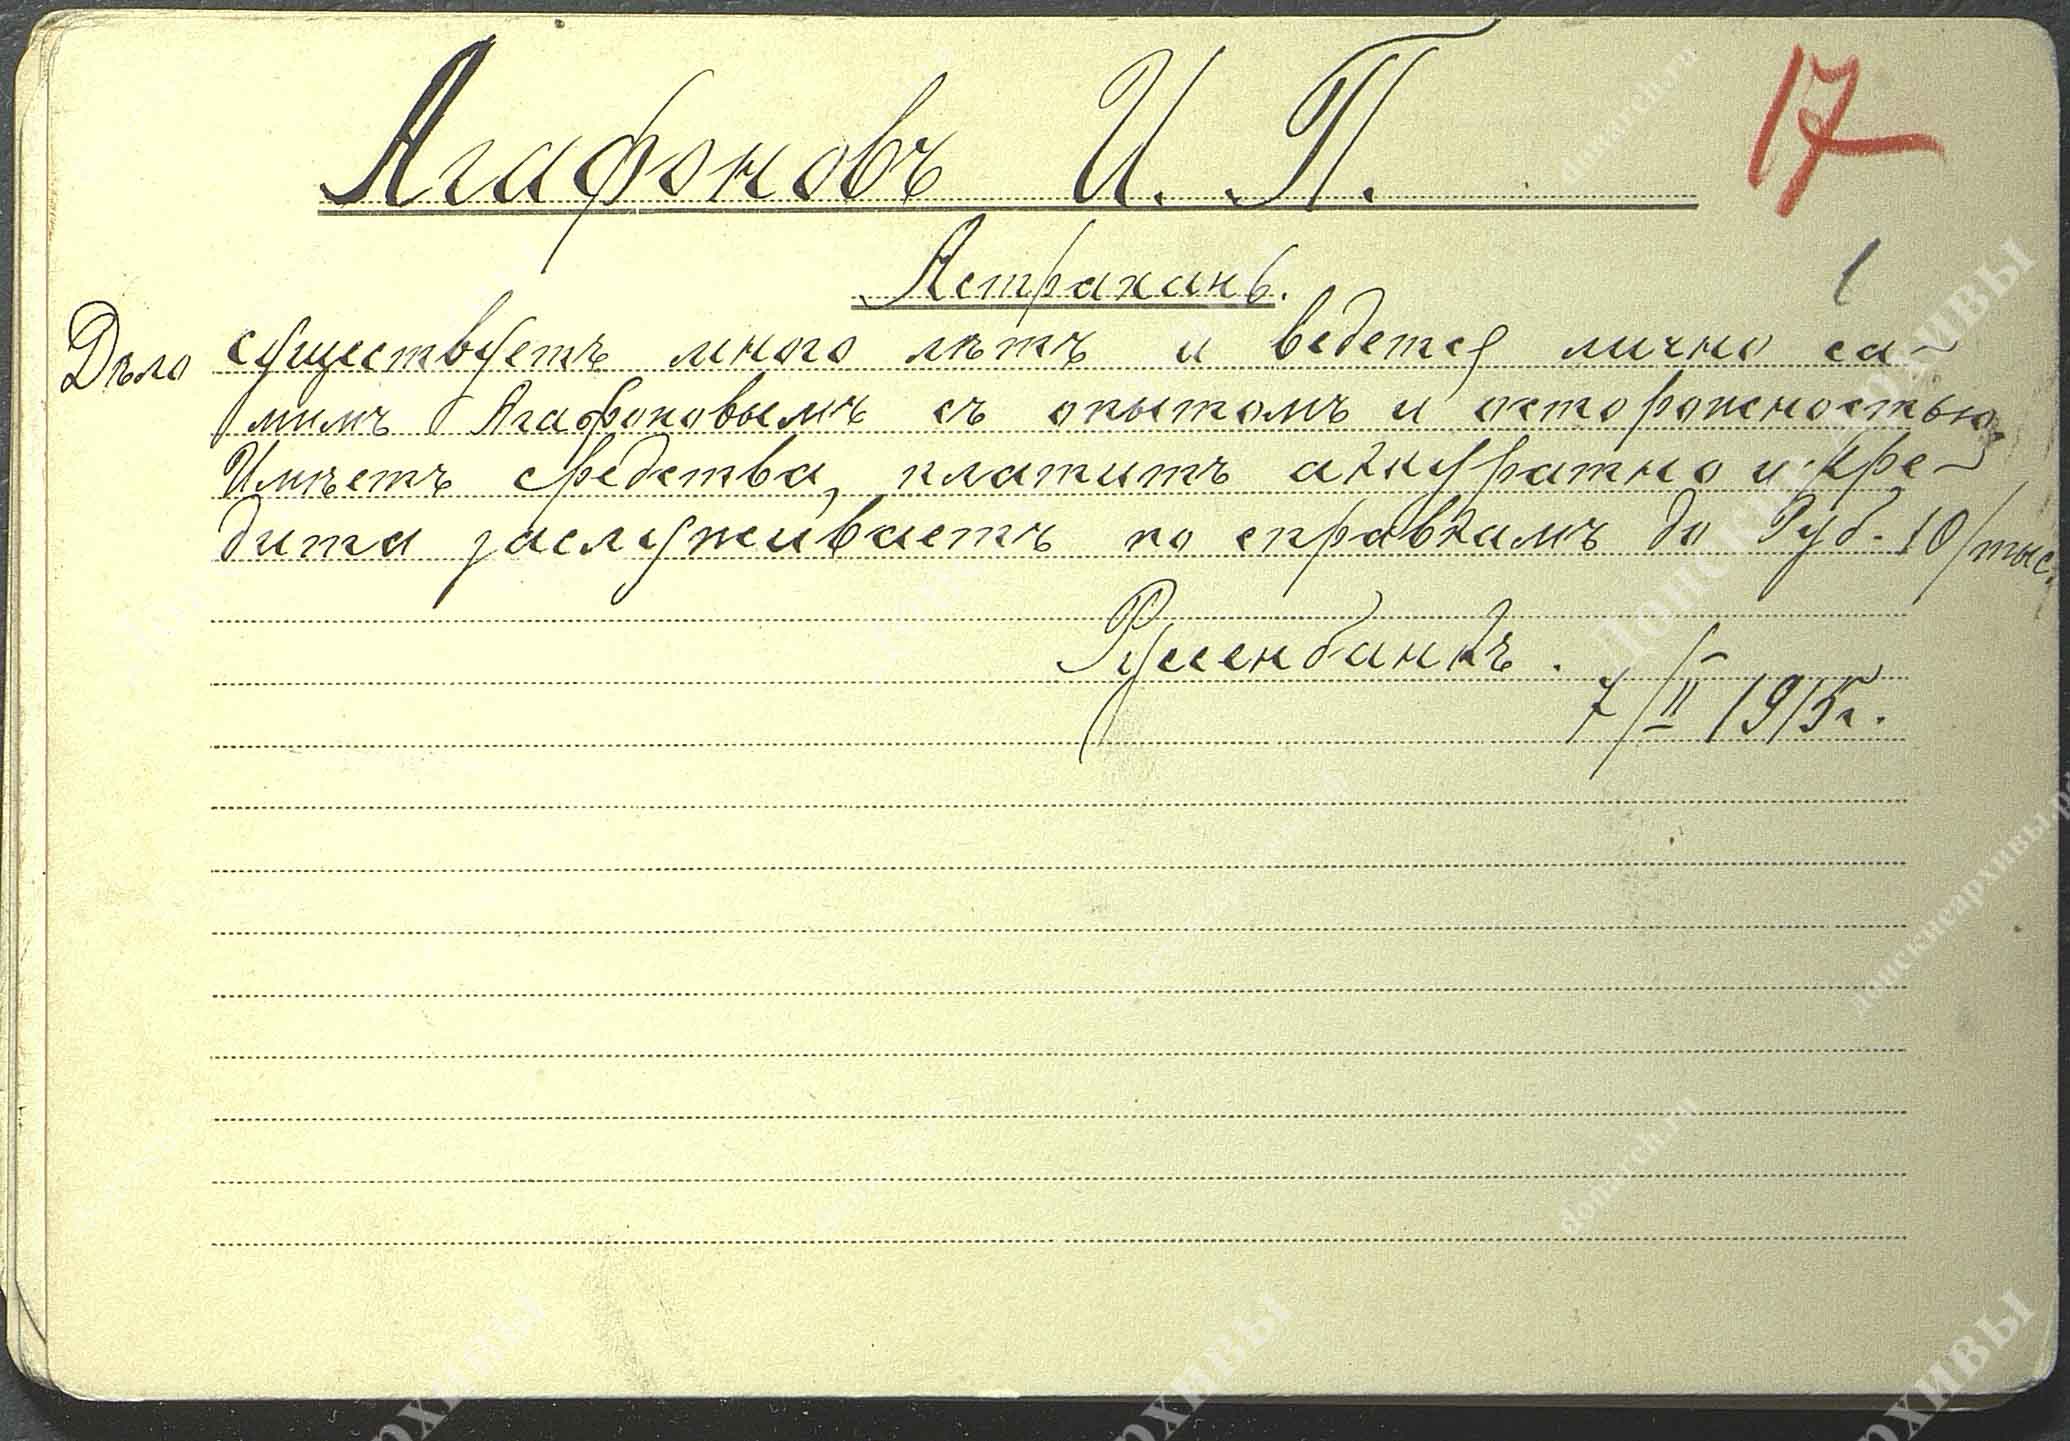 Агафоновъ И. П.
17
Астрахань.
1
Дѣло существуетъ много лѣтъ и ведется лично са-
мимъ Агафоновымъ съ опытомъ и осторожностью.
Имѣетъ средства, платитъ аккуратно и кре-
дита заслуживаетъ по справкамъ до Руб. 10/тыс.
Руссенбанкъ.
7/II 1915г.
Донские архивы
донскиеархивы.рф
donarch.ru